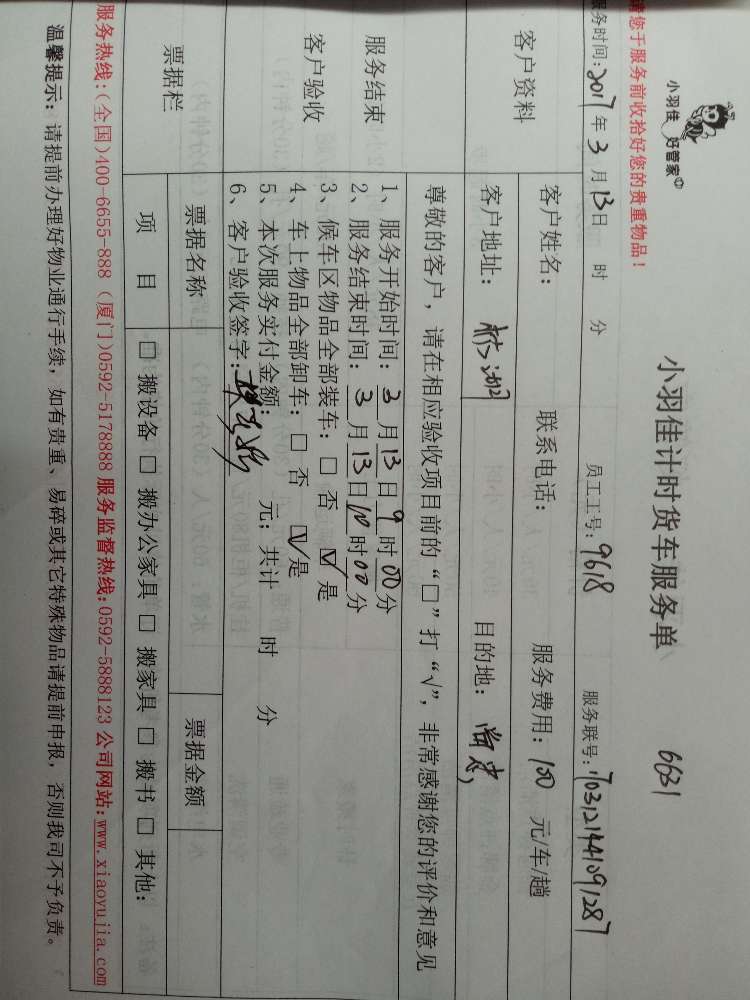 小羽佳 好管家
小羽佳计时货车服务单 6631
请您于服务前收拾好您的贵重物品！
服务时间：2017年3月13日 时 分 员工工号：9618 服务联号：1703121441091287
客户资料
客户姓名： 联系电话： 服务费用：100 元/车/趟
客户地址： 目的地：
尊敬的客户，请在相应验收项目前的“□”打“√”，非常感谢您的评价和意见
服务结束
客户验收
1、服务开始时间：3月13日9时00分
2、服务结束时间：3月13日10时00分
3、候车区物品全部装车：□ 否 ☑ 是
4、车上物品全部卸车：□ 否 ☑ 是
5、本次服务实付金额： 元；共计 时 分
6、客户验收签字：
票据栏
票据名称 票据金额
项 目 □ 搬设备 □ 搬办公家具 □ 搬家具 □ 搬书 □ 其他：
服务热线：(全国)400-6655-888 (厦门)0592-5178888 服务监督热线：0592-5888123 公司网站：www.xiaoyujia.com
温馨提示：请提前办理好物业通行手续，如有贵重、易碎或其它特殊物品请提前申报，否则我司不予负责。